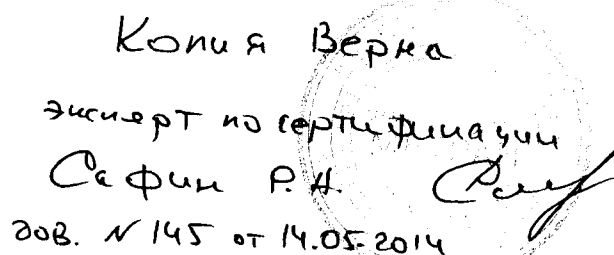 Копия Верна
эксперт по сертификации
Сафин Р.Н.
дов. N 145 от 14.05.2014